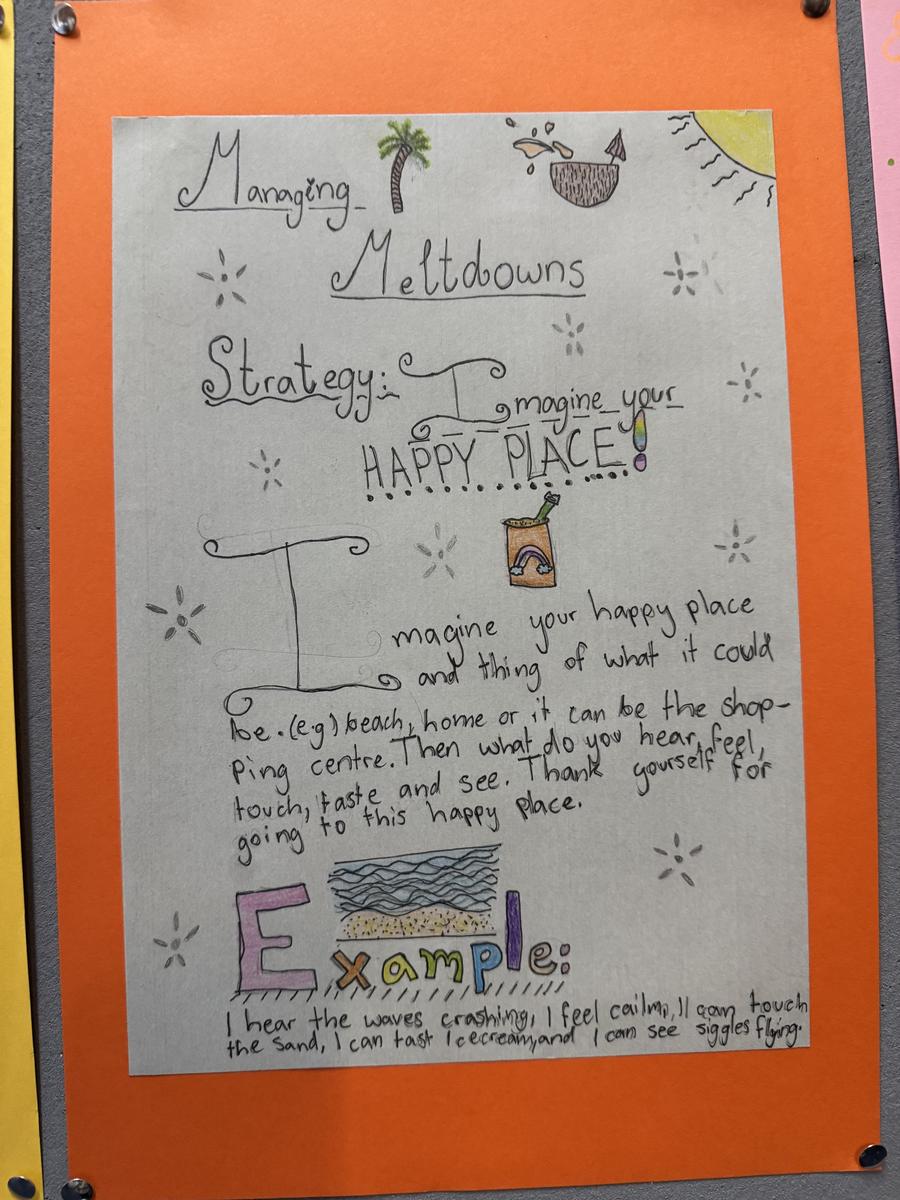 Managing
Meltdowns
Strategy: Imagine your
HAPPY PLACE!
Imagine your happy place
and thing of what it could
be. (e.g) beach, home or it can be the shop-
ping centre. Then what do you hear, feel,
touch, taste and see. Thank yourself for
going to this happy place.
Example:
I hear the waves crashing, I feel cailm, I can touch
the sand, I can tast Icecream, and I can see siggles flying.